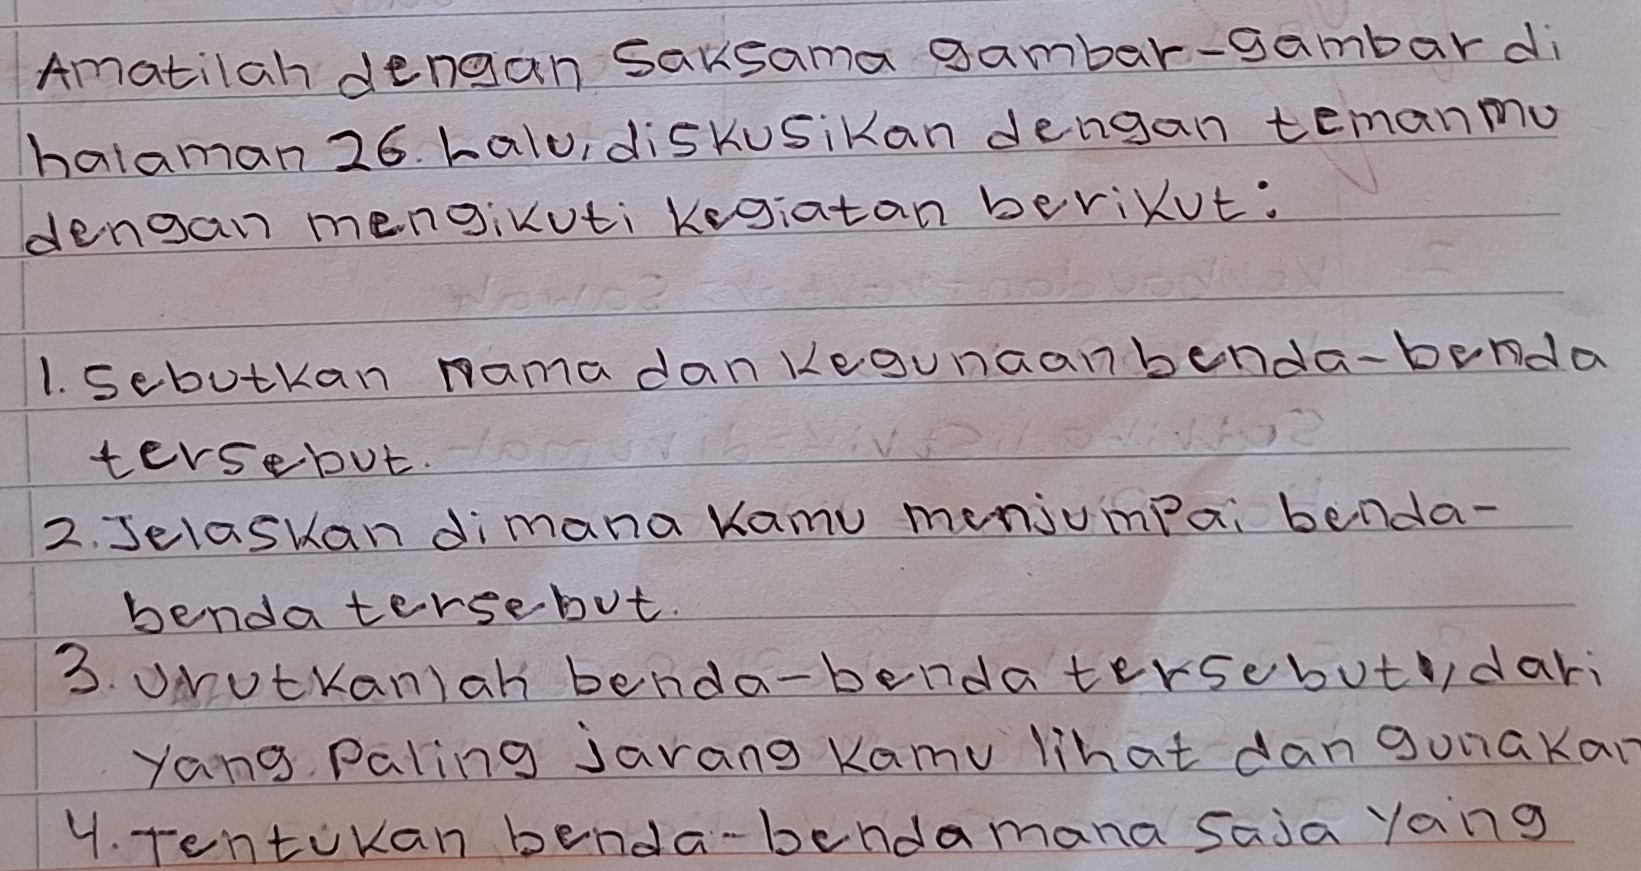 Amatilah dengan saksama gambar-gambar di
halaman 26. Lalu, diskusikan dengan temanmu
dengan mengikuti kegiatan berikut:
1. Sebutkan nama dan kegunaan benda-benda
tersebut.
2. Jelaskan dimana kamu menjumpai benda-
benda tersebut.
3. Urutkanlah benda-benda tersebut, dari
yang paling jarang kamu lihat dan gunakan
4. Tentukan benda-benda mana saja yang